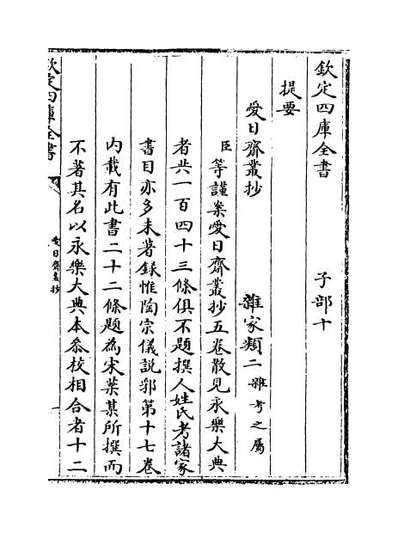 欽定四庫全書 子部十
提要
愛日齋叢抄 雜家類二雜考之屬
臣等謹案愛日齋叢抄五卷散見永樂大典
者共一百四十三條俱不題撰人姓氏考諸家
書目亦多未著錄惟陶宗儀說郛第十七卷
內載有此書二十二條題為宋葉某所撰而
不著其名以永樂大典本叅校相合者十二
欽定四庫全書
愛日齋叢抄
一